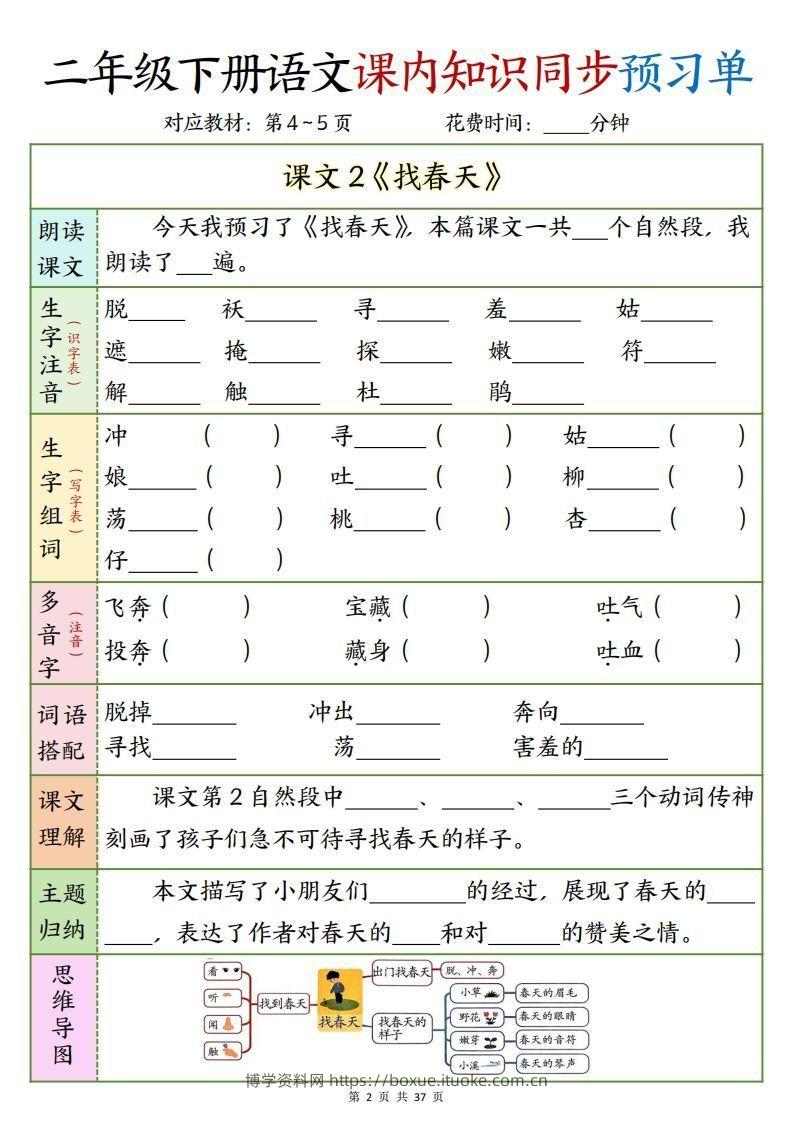 二年级下册语文课内知识同步预习单
对应教材：第4~5页 花费时间：____分钟
课文2《找春天》
朗读课文
今天我预习了《找春天》，本篇课文一共___个自然段，我
朗读了___遍。
生字注音（识字表）
脱_____ 袄______ 寻______ 羞______ 姑______
遮______ 掩______ 探______ 嫩______ 符______
解______ 触______ 杜______ 鹃______
生字组词（写字表）
冲 （ ） 寻______（ ） 姑______（ ）
娘______（ ） 吐______（ ） 柳______（ ）
荡______（ ） 桃______（ ） 杏______（ ）
仔______（ ）
多音字（注音）
飞奔（ ） 宝藏（ ） 吐气（ ）
投奔（ ） 藏身（ ） 吐血（ ）
词语搭配
脱掉_______ 冲出_______ 奔向_______
寻找_______ 荡_______ 害羞的_______
课文理解
课文第2自然段中______、______、______三个动词传神
刻画了孩子们急不可待寻找春天的样子。
主题归纳
本文描写了小朋友们________的经过，展现了春天的____
____，表达了作者对春天的____和对______的赞美之情。
思维导图
看
听
闻
触
找到春天
找春天
出门找春天
脱、冲、奔
找春天的
样子
小草
春天的眉毛
野花
春天的眼睛
嫩芽
春天的音符
小溪
春天的琴声
博学资料网 https://boxue.ituoke.com.cn
第 2 页 共 37 页